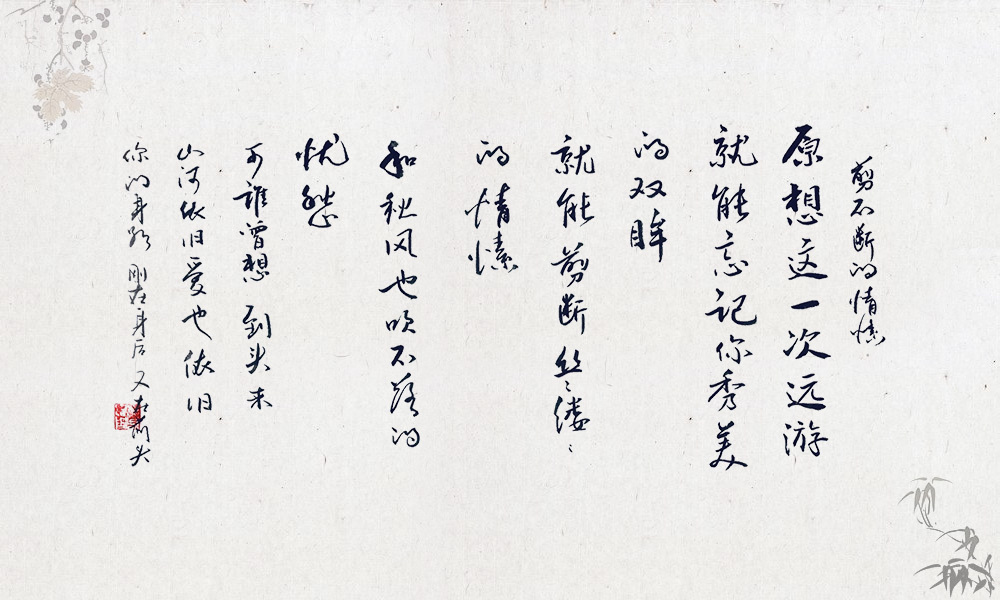 剪不断的情愫
原想这一次远游
就能忘记你秀美
的双眸
就能剪断丝丝缕缕
的情愫
和秋风也吹不落的
忧愁
可谁曾想到头来
山河依旧爱也依旧
你的身影刚在身后又在前头